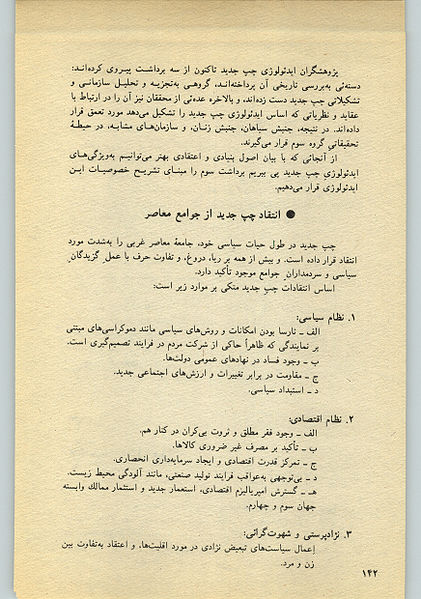 پژوهشگران ایدئولوژی چپ جدید تاکنون از سه برداشت پیروی کرده‌اند:
دسته‌ئی به‌بررسی تاریخی آن پرداخته‌اند، گروهی به‌تجزیه و تحلیل سازمانی و
تشکیلاتی چپ جدید دست زده‌اند، و بالاخره عده‌ئی از محققان نیز آن را در ارتباط با
عقاید و نظریاتی که اساس ایدئولوژی چپ جدید را تشکیل می‌دهد مورد تعمق قرار
داده‌اند. در نتیجه، جنبش سیاهان، جنبش زنان، و سازمان‌های مشابه، در حیطهٔ
تحقیقاتی گروه سوم قرار می‌گیرند.
از آنجائی که با بیان اصول بنیادی و اعتقادی بهتر می‌توانیم به‌ویژگی‌های
ایدئولوژی چپ جدید پی ببریم برداشت سوم را مبنای تشریح خصوصیات این
ایدئولوژی قرار می‌دهیم.
● انتقاد چپ جدید از جوامع معاصر
چپ جدید در طول حیات سیاسی خود، جامعهٔ معاصر غربی را به‌شدت مورد
انتقاد قرار داده است. و بیش از همه بر ریا، دروغ، و تفاوت حرف با عمل گزیدگان
سیاسی و سردمداران جوامع موجود تأکید دارد.
اساس انتقادات چپ جدید متکی بر موارد زیر است:
۱. نظام سیاسی:
الف ـ نارسا بودن امکانات و روش‌های سیاسی مانند دموکراسی‌های مبتنی
بر نمایندگی که ظاهراً حاکی از شرکت مردم در فرایند تصمیم‌گیری است.
ب ـ وجود فساد در نهادهای عمومی دولت‌ها.
ج ـ مقاومت در برابر تغییرات و ارزش‌های اجتماعی جدید.
د ـ استبداد سیاسی.
۲. نظام اقتصادی:
الف ـ وجود فقر مطلق و ثروت بی‌کران در کنار هم.
ب ـ تأکید بر مصرف غیر ضروری کالاها.
ج ـ تمرکز قدرت اقتصادی و ایجاد سرمایه‌داری انحصاری.
د ـ بی‌توجهی به‌عواقب فرایند تولید صنعتی، مانند آلودگی محیط زیست.
هـ ـ گسترش امپریالیزم اقتصادی، استعمار جدید و استثمار ممالك وابسته
جهان سوم و چهارم.
۳. نژادپرستی و شهوت‌گرائی:
اِعمال سیاست‌های تبعیض نژادی در مورد اقلیت‌ها، و اعتقاد به‌تفاوت بین
زن و مرد.
۱۴۲